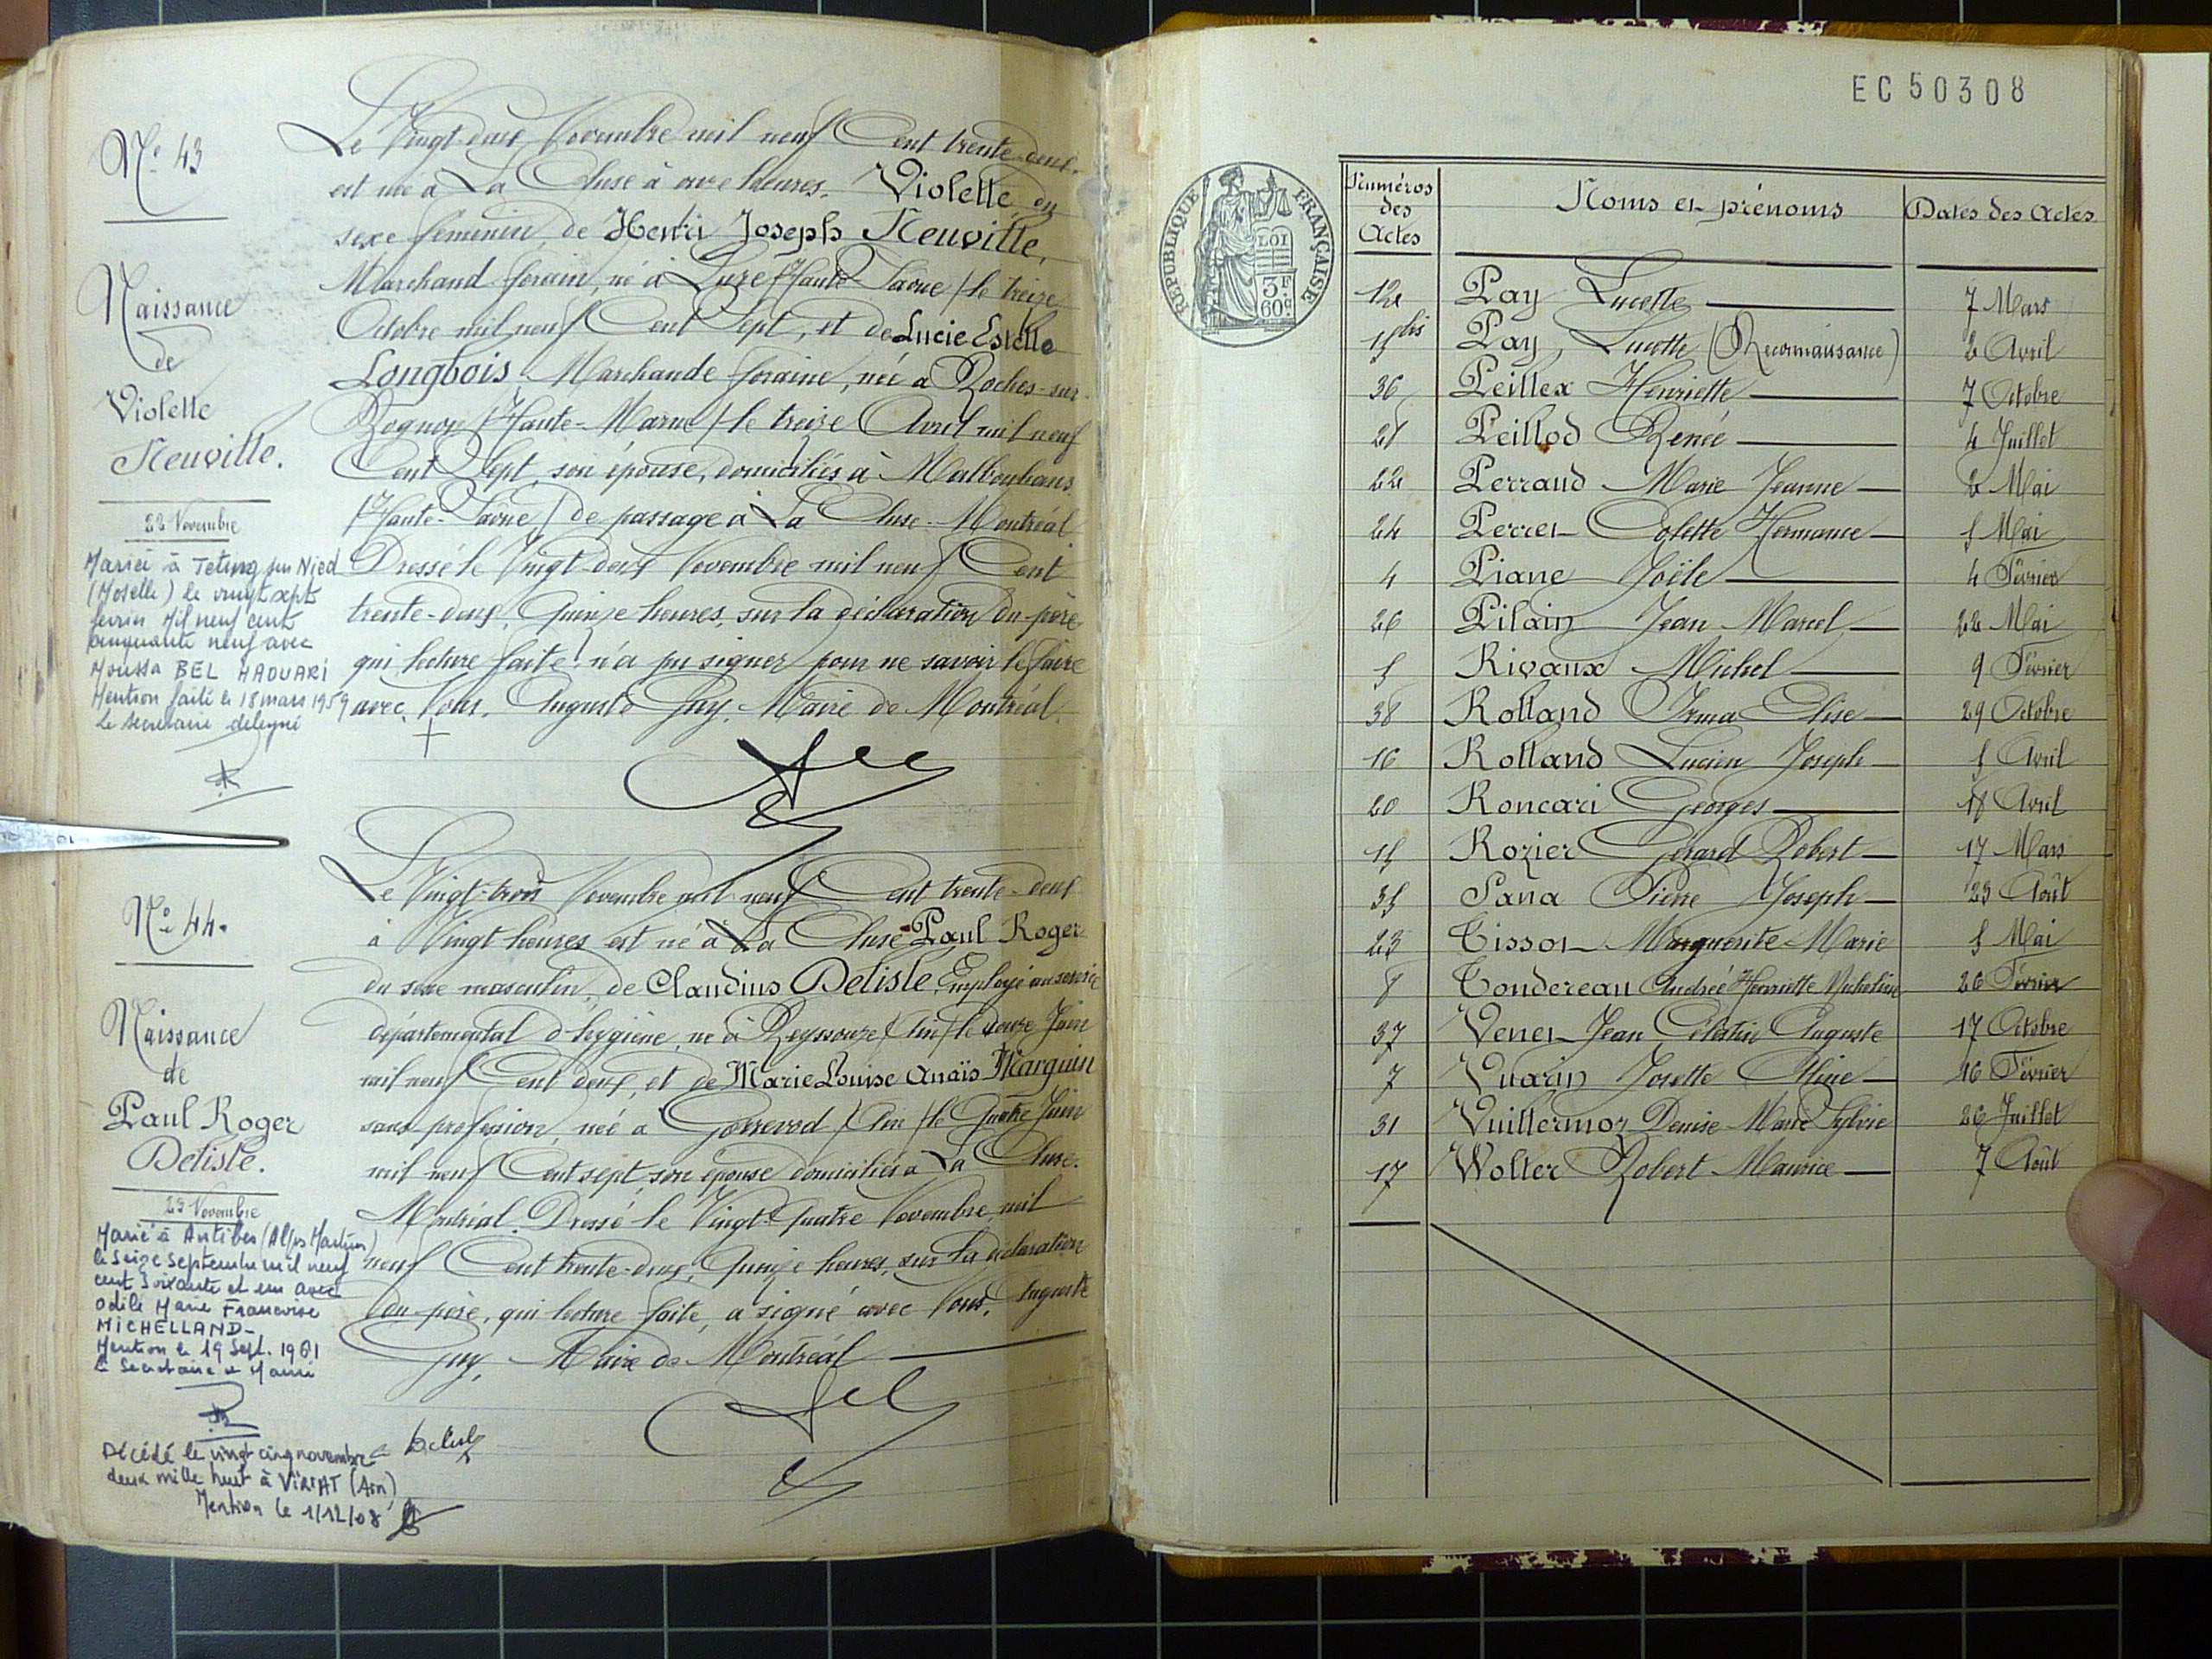 N° 43
Naissance
de
Violette
Neuville.
22 Novembre
Mariée à Teting sur Nied
(Moselle) le vingt sept
février Mil neuf cent
cinquante neuf avec
Moussa BEL HAOUARI
Mention faite le 18 mars 1959
Le secrétaire délégué
Le Vingt-deux Novembre mil neuf Cent trente-deux
est née à La Cluse à onze heures. Violette, du
sexe féminin, de Henri Joseph Neuville,
Marchand forain, né à Lure (Haute-Saône) le treize
Octobre mil neuf Cent Sept, et de Lucie Estelle
Longbois Marchande foraine, née à Roches-sur-
Rognon (Haute-Marne) le treize Avril mil neuf
Cent Sept, son épouse, domiciliés à Malbouhans
(Haute-Saône) de passage à La Cluse. Montréal
Dressé le Vingt-deux Novembre mil neuf Cent
trente-deux, Quinze heures, sur la déclaration du père
qui lecture faite n'a pu signer pour ne savoir le faire
avec Nous, Auguste Guy, Maire de Montréal.
N° 44.
Naissance
de
Paul Roger
Delisle.
23 Novembre
Marié à Antibes (Alpes Maritimes)
le Seize Septembre mil neuf
cent soixante et un avec
Odile Marie Françoise
MICHELLAND-
Mention le 19 Sept. 1961
Le Secrétaire de Mairie
Décédé le vingt cinq novembre
deux mille huit à VIRIAT (Ain)
Mention le 1/12/08
Le Vingt-trois Novembre mil neuf Cent trente-deux
à Vingt heures est né à La Cluse Paul Roger
du sexe masculin, de Claudius Delisle, Employé au service
départemental d'hygiène, né à Reyssouze (Ain) le douze Juin
mil neuf Cent deux, et de Marie Louise Anaïs Marguin
sans profession, née à Gorrevod (Ain) le Quatre Juin
mil neuf Cent sept son épouse domiciliés à La Cluse.
Montréal. Dressé le Vingt-Quatre Novembre mil
neuf Cent trente-deux, Quinze heures, sur la déclaration
du père, qui lecture faite, a signé avec Nous, Auguste
Guy, Maire de Montréal
EC 50308
RÉPUBLIQUE FRANÇAISE
LOI
3F
60c
Numéros des Actes Noms et prénoms Dates des Actes
12 Pay Lucette 7 Mars
15bis Pay, Lucette (Reconnaissance) 2 Avril
36 Peillex Henriette 7 Octobre
28 Peillod Renée 4 Juillet
22 Perraud Marie Jeanne 2 Mai
24 Perret Colette Hermance 5 Mai
4 Piane Joële 4 Février
26 Pilain Jean Marcel 22 Mai
5 Rivaux Michel 9 Février
38 Rolland Irma Elise 29 Octobre
16 Rolland Lucien Joseph 5 Avril
20 Roncari Georges 18 Avril
15 Rozier Gérard Robert 17 Mars
35 Sana Pierre Joseph 23 Août
23 Tissot Marguerite Marie 5 Mai
8 Tondereau Andrée Henriette Micheline 26 Février
37 Venet Jean Célestin Auguste 17 Octobre
7 Vuarin Josette Aline 16 Février
31 Vuillermoz Denise Marie Sylvie 26 Juillet
17 Wolter Robert Maurice 7 Août